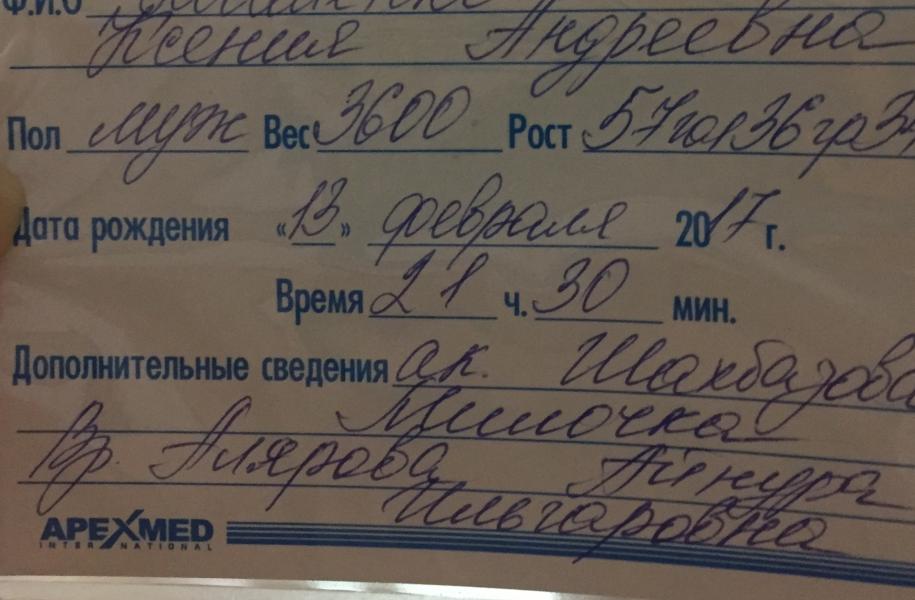 Ф.И.О
Ксения Андреевна
Пол муж Вес 3600 Рост 57 гол 36 гр 34
Дата рождения «13» февраля 2017 г.
Время 21 ч. 30 мин.
Дополнительные сведения ак. Шахбазова
Милочка
Вр. Алярова Айнура
Ильгаровна
APEXMED
INTERNATIONAL